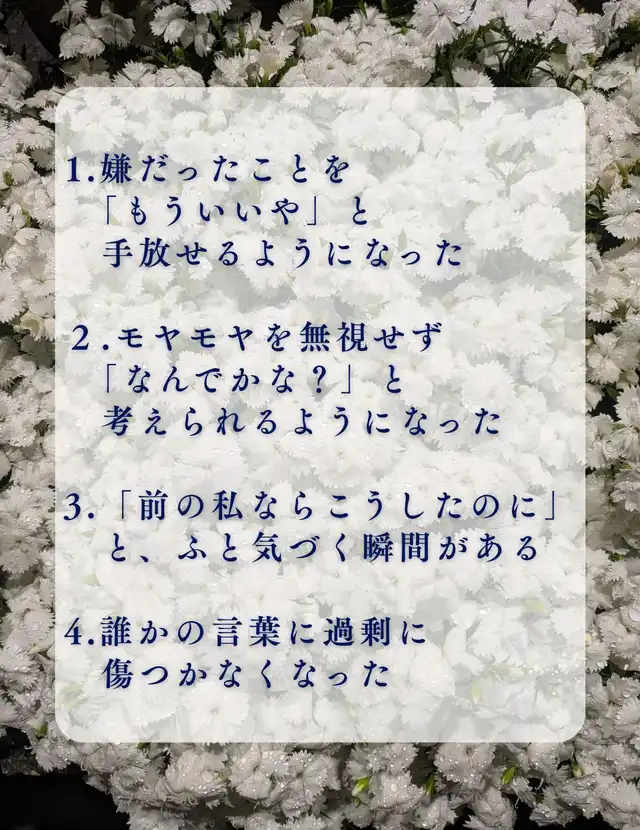 1.嫌だったことを
「もういいや」と
手放せるようになった
２.モヤモヤを無視せず
「なんでかな？」と
考えられるようになった
3.「前の私ならこうしたのに」
と、ふと気づく瞬間がある
4.誰かの言葉に過剰に
傷つかなくなった